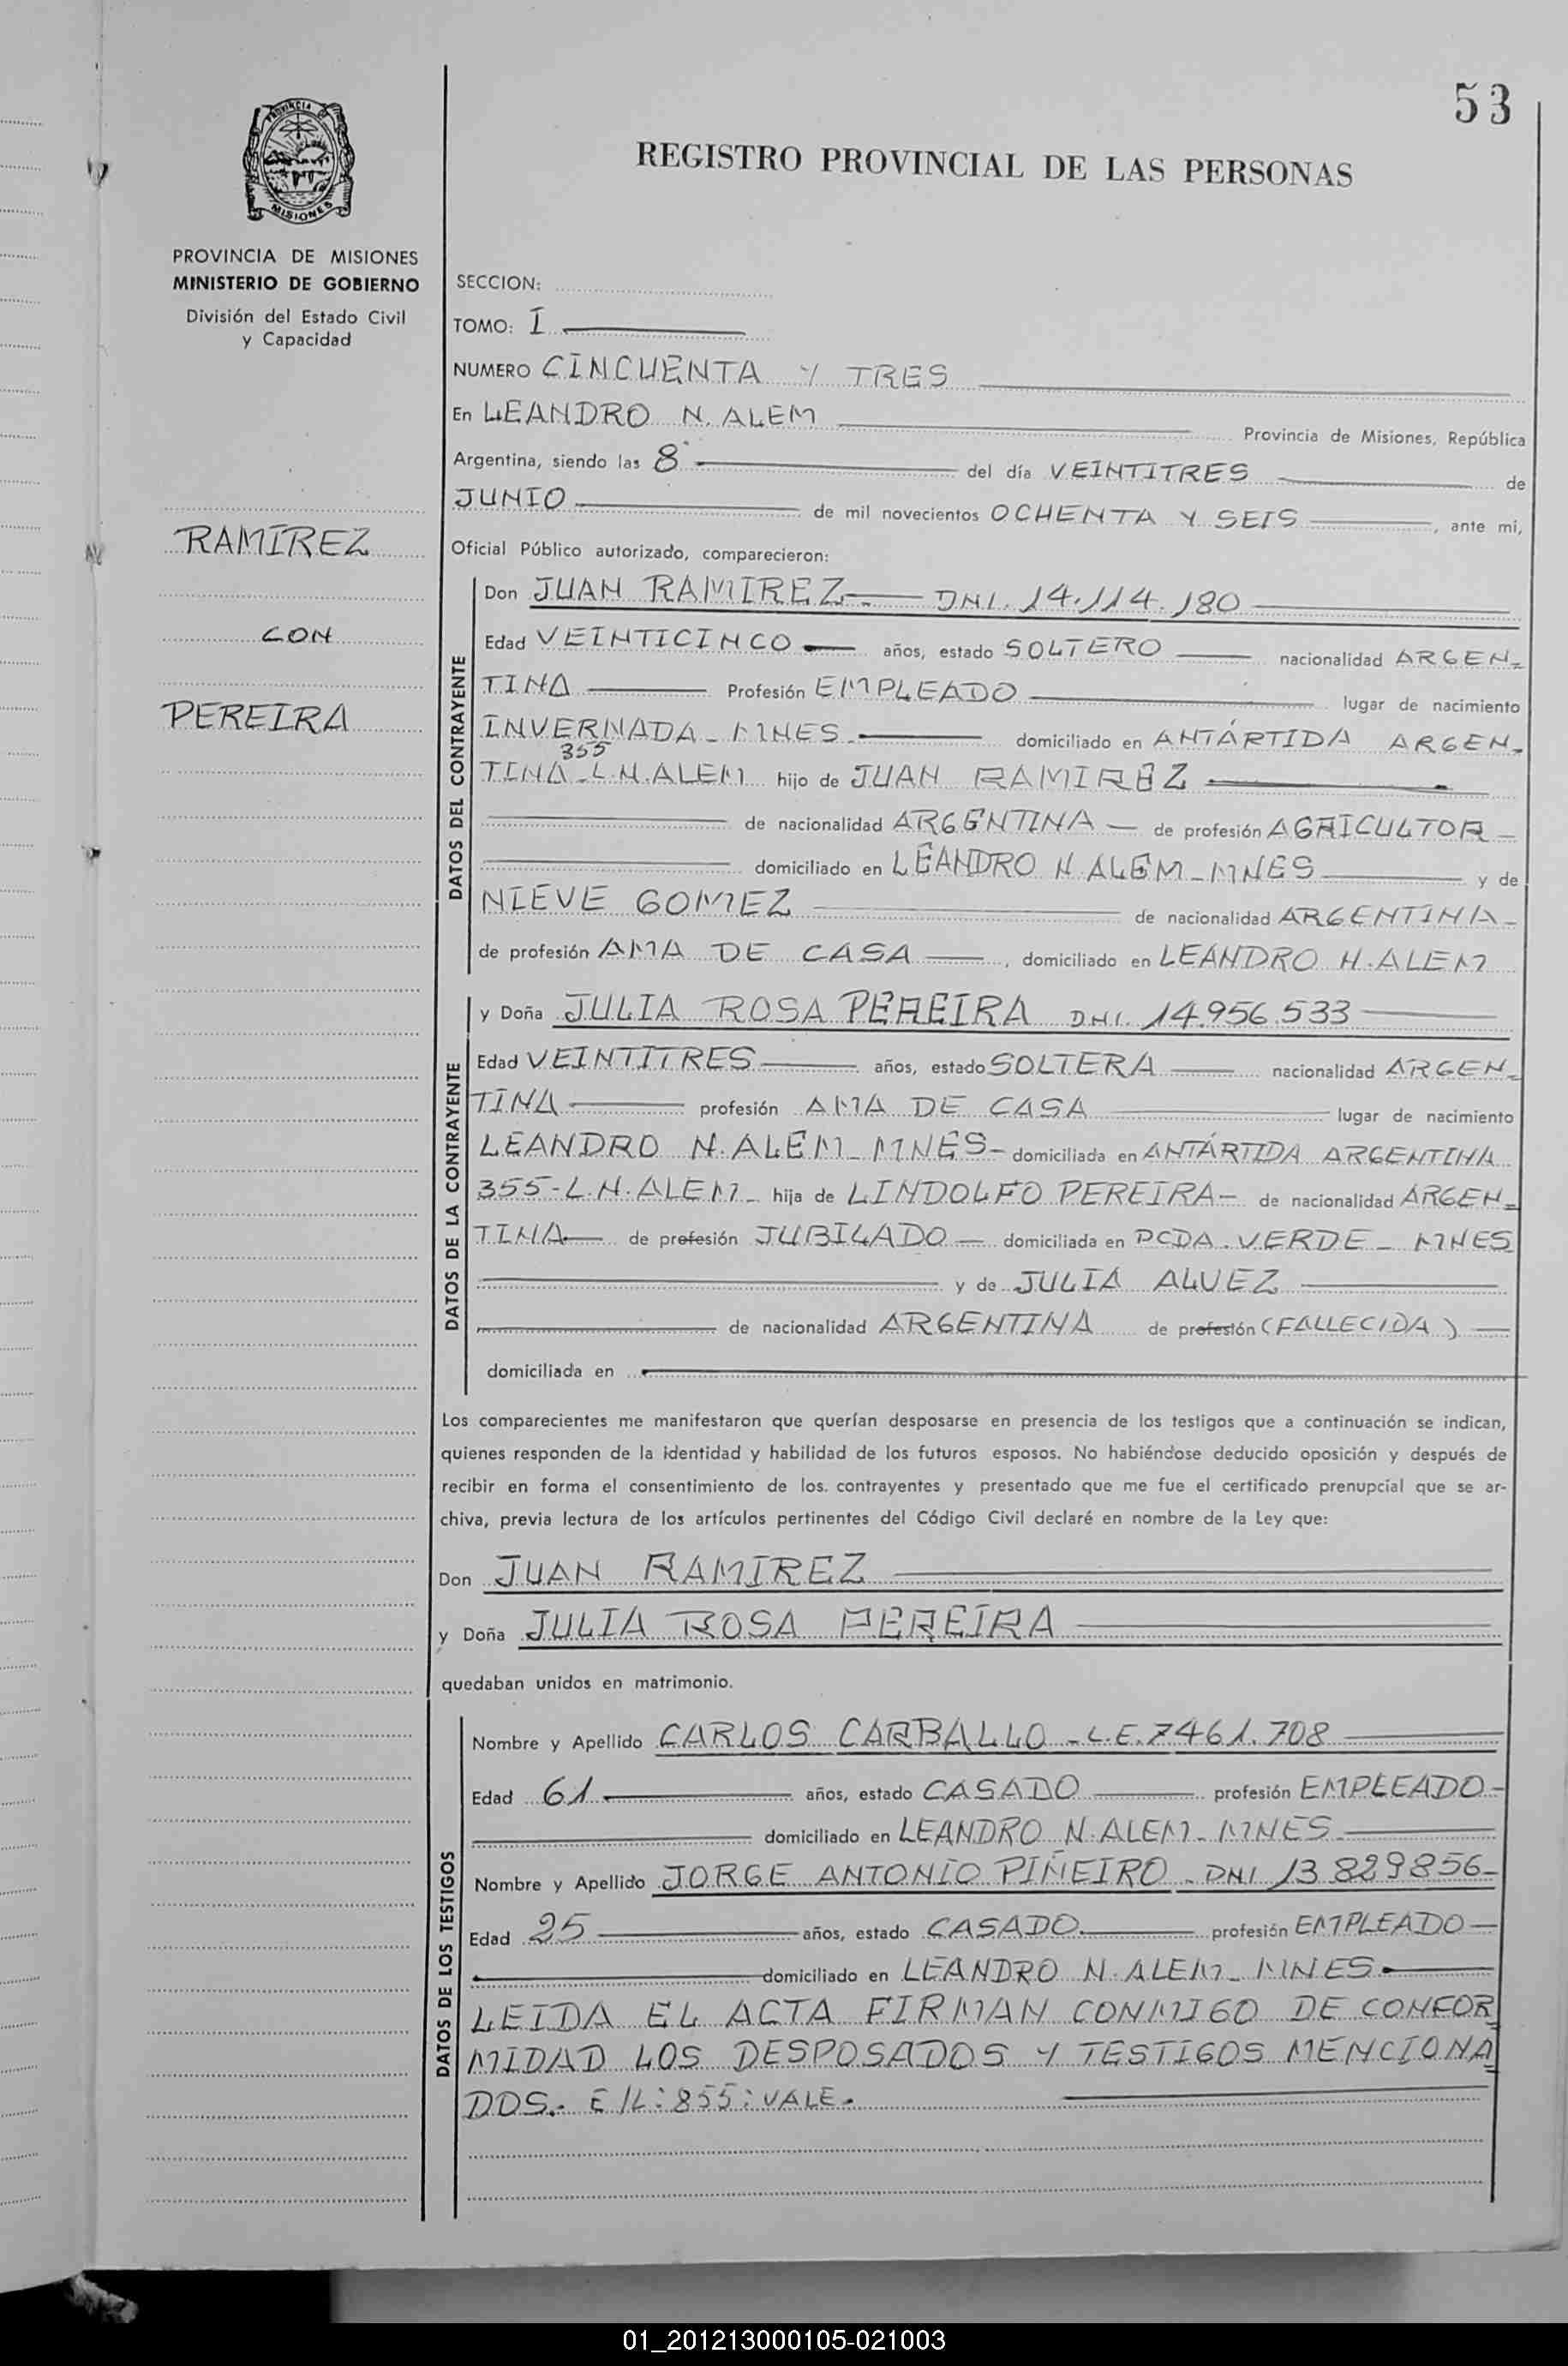 53
PROVINCIA
MISIONES
REGISTRO PROVINCIAL DE LAS PERSONAS
PROVINCIA DE MISIONES
MINISTERIO DE GOBIERNO
División del Estado Civil
y Capacidad
RAMÍREZ
CON
PEREIRA
SECCION:
TOMO: I
NUMERO CINCUENTA Y TRES
En LEANDRO N. ALEM Provincia de Misiones, República
Argentina, siendo las 8 del día VEINTITRES de
JUNIO de mil novecientos OCHENTA Y SEIS, ante mi,
Oficial Público autorizado, comparecieron:
DATOS DEL CONTRAYENTE
Don JUAN RAMIREZ-. DNI. 14.114.180
Edad VEINTICINCO años, estado SOLTERO nacionalidad ARGEN-
TINA Profesión EMPLEADO lugar de nacimiento
INVERNADA - MNES. domiciliado en ANTÁRTIDA ARGEN-
355
TINA - L.N.ALEM hijo de JUAN RAMIREZ
de nacionalidad ARGENTINA - de profesión AGRICULTOR -
domiciliado en LEANDRO N. ALEM - MNES y de
NIEVE GOMEZ de nacionalidad ARGENTINA -
de profesión AMA DE CASA, domiciliado en LEANDRO N. ALEM
DATOS DE LA CONTRAYENTE
y Doña JULIA ROSA PEREIRA DNI. 14.956.533
Edad VEINTITRES años, estado SOLTERA nacionalidad ARGEN-
TINA profesión AMA DE CASA lugar de nacimiento
LEANDRO N. ALEM - MNES - domiciliada en ANTÁRTIDA ARGENTINA
355 - L.N. ALEM - hija de LINDOLFO PEREIRA - de nacionalidad ARGEN-
TINA de profesión JUBILADO - domiciliada en PCDA. VERDE - MNES
y de JULIA ALVEZ
de nacionalidad ARGENTINA de profesión (FALLECIDA)
domiciliada en
Los comparecientes me manifestaron que querían desposarse en presencia de los testigos que a continuación se indican,
quienes responden de la identidad y habilidad de los futuros esposos. No habiéndose deducido oposición y después de
recibir en forma el consentimiento de los. contrayentes y presentado que me fue el certificado prenupcial que se ar-
chiva, previa lectura de los artículos pertinentes del Código Civil declaré en nombre de la Ley que:
Don JUAN RAMIREZ
y Doña JULIA ROSA PEREIRA
quedaban unidos en matrimonio.
DATOS DE LOS TESTIGOS
Nombre y Apellido CARLOS CARBALLO - L.E. 7461.708
Edad 61 años, estado CASADO profesión EMPLEADO -
domiciliado en LEANDRO N. ALEM - MNES
Nombre y Apellido JORGE ANTONIO PIÑEIRO - DNI 13.829856-
Edad 25 años, estado CASADO profesión EMPLEADO -
domiciliado en LEANDRO N. ALEM - MNES
LEIDA EL ACTA FIRMAN CONMIGO DE CONFOR
MIDAD LOS DESPOSADOS Y TESTIGOS MENCIONA
DOS.- E/L: 855: VALE.
01_201213000105-021003